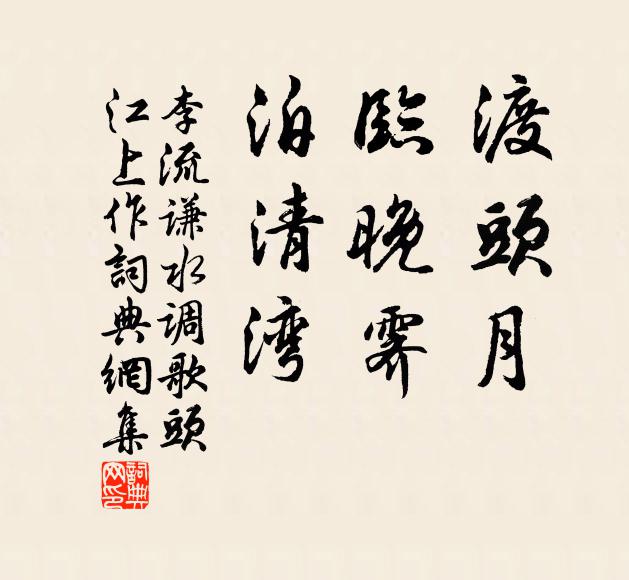 渡頭月
臨晚霽
泊清湾
李流谦水调歌頭
江上作詞典網集
詞典
网印